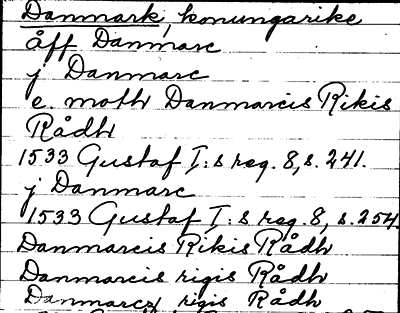 Danmark, konungarike
åff Danmarc
j Danmarc
e. moth Danmarcis Rikis
Rådh
1533 Gustaf I:s reg. 8, s. 241.
j Danmarc
1533 Gustaf I:s reg. 8, s. 254.
Danmarcis Rikis Rådh
Danmarcis rigis Rådh
rigis Rådh